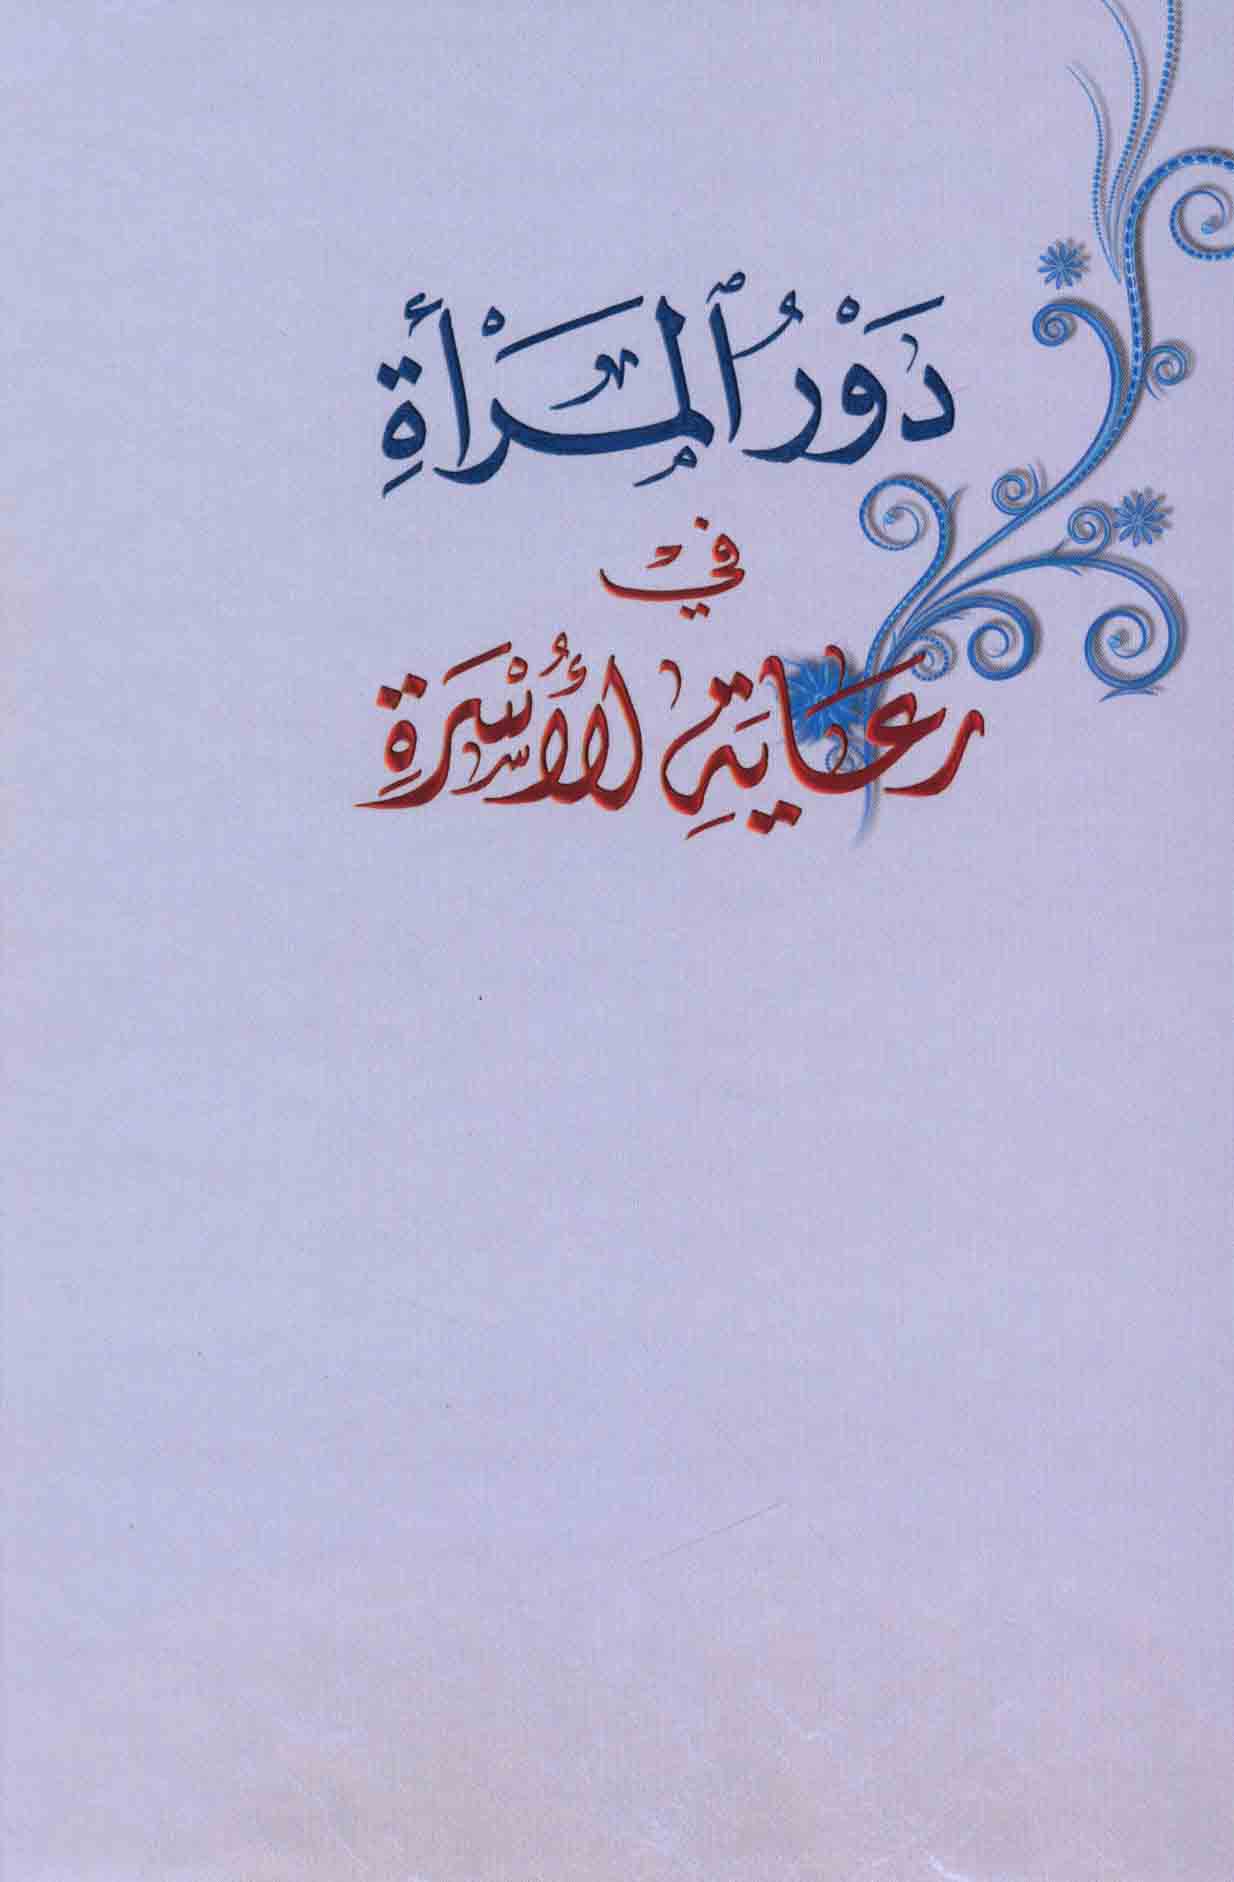 دَوْرُ ٱلْمَرْأَةِ
فِي
رِعَايَةِ الأُسْرَةِ